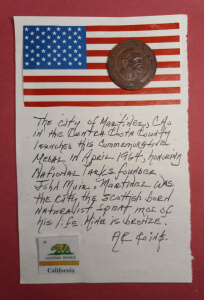 The city of Martinez, CA.
in the Contra Costa County
launched this commemorative
Medal in April 1964, honoring
National Parks founder
John Muir. Martinez was
the city the Scottish born
Naturalist spent most of
his life. Mine is bronze.
CALIFORNIA REPUBLIC
California